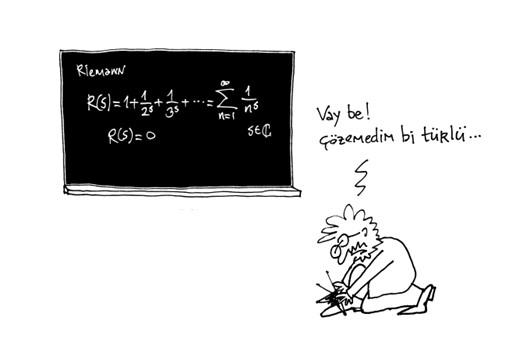 Riemann
R(s)=1+1/2^s+1/3^s+...=∑_{n=1}^{∞} 1/n^s
R(s)=0 s∈ℂ
Vay be!
Çözemedim bi türlü...